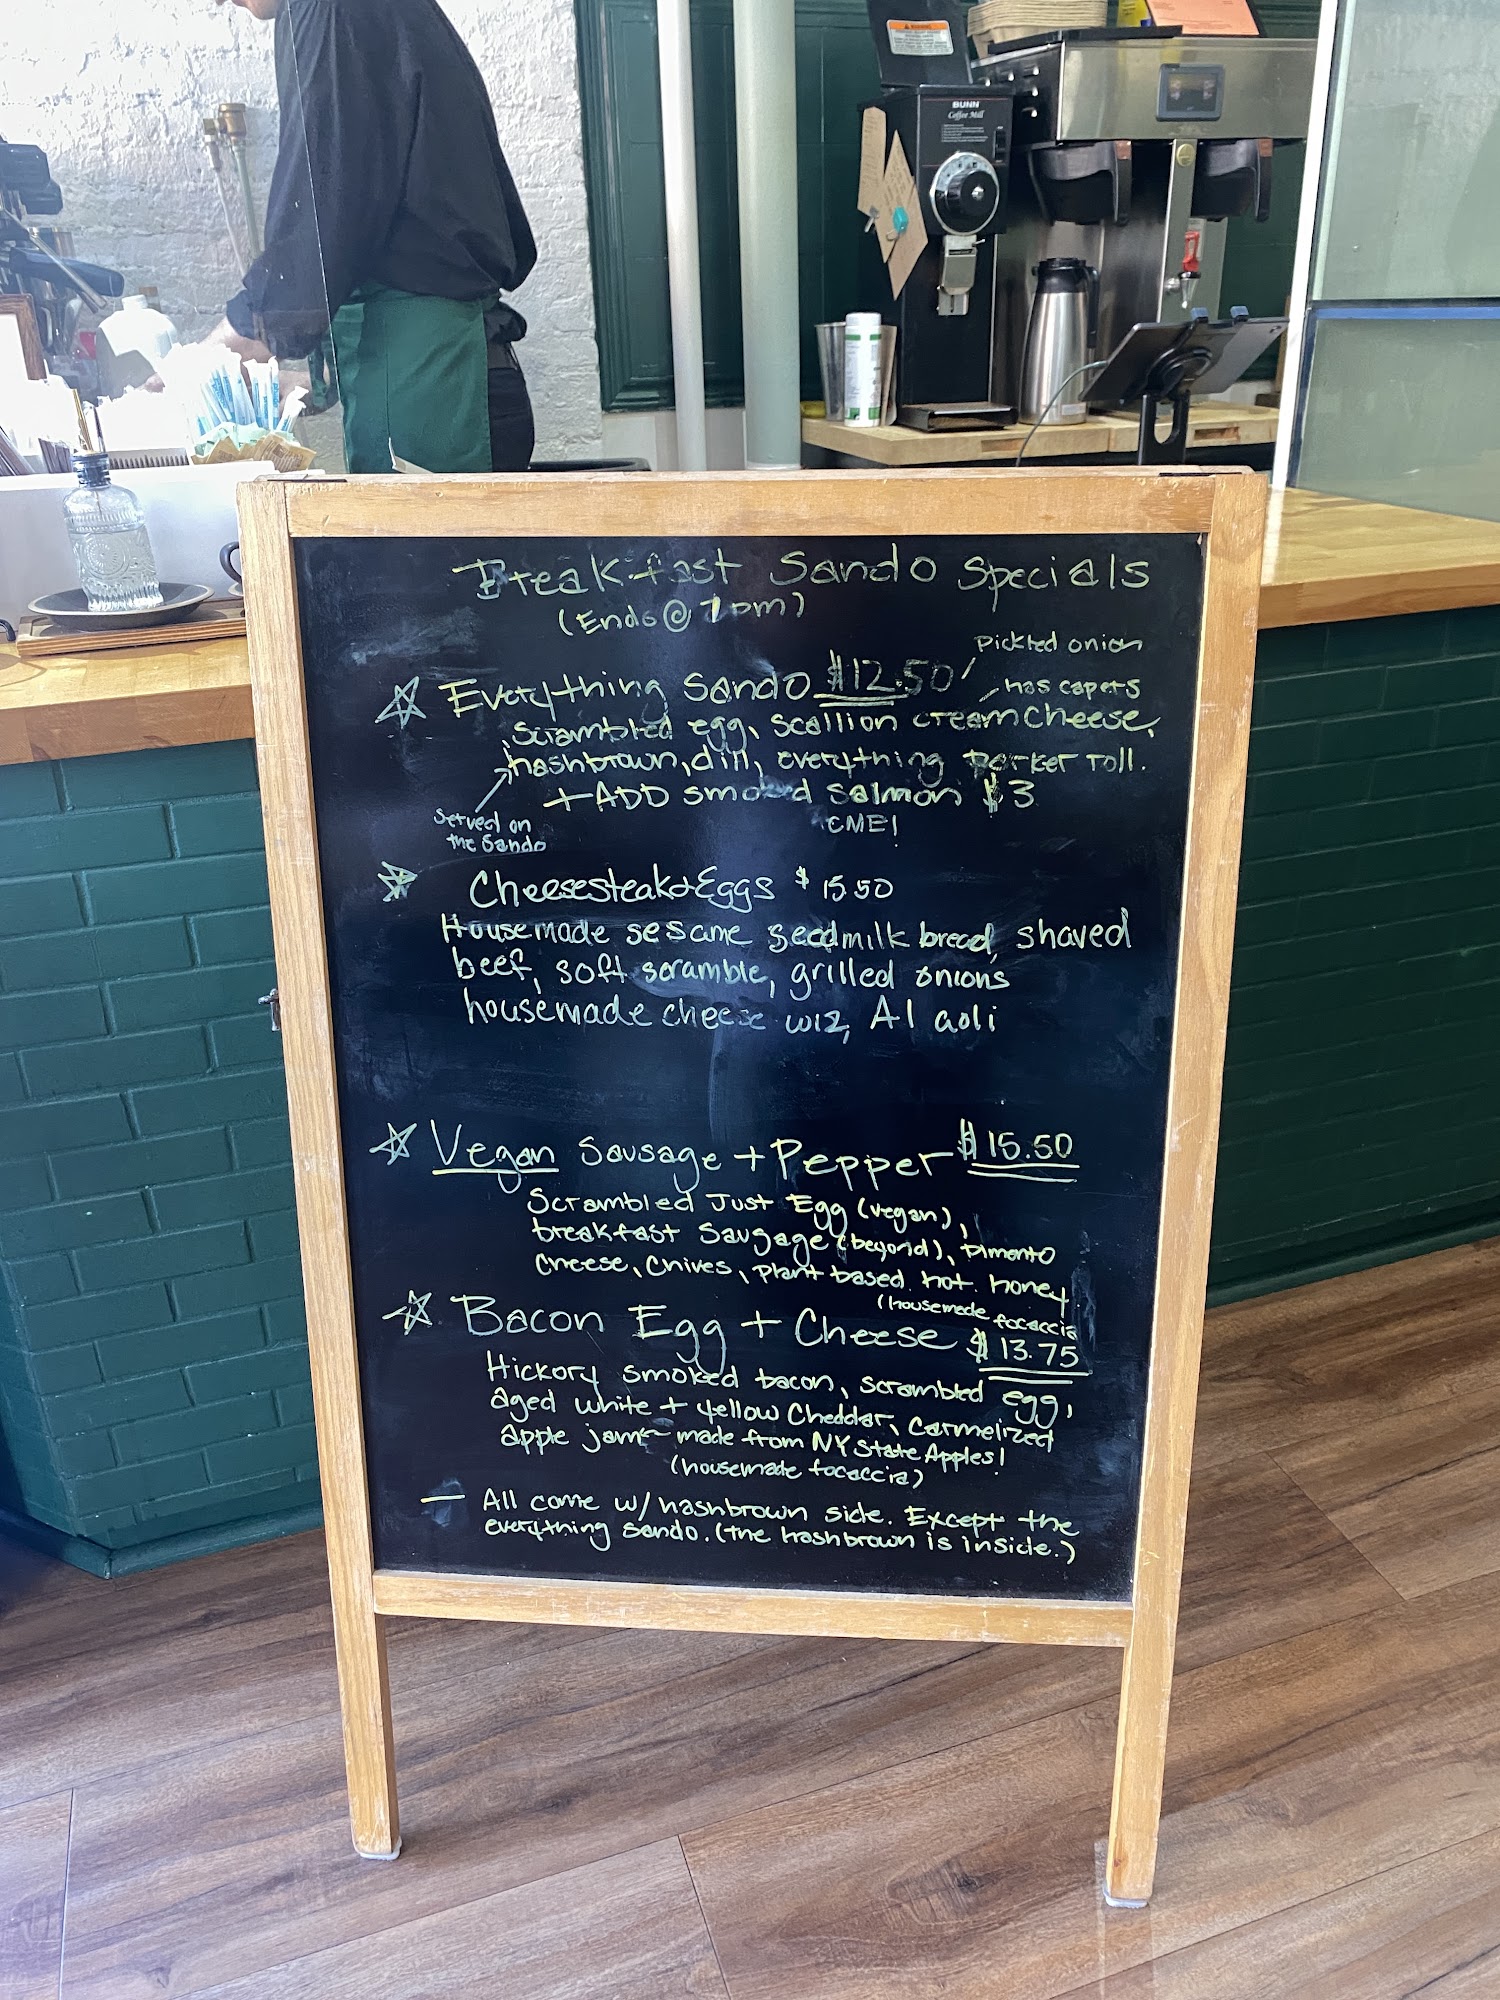 BUNN
Coffee Mill
WARNING
Breakfast Sando Specials
(Ends @ 2pm)
Pickled onion
Everything Sando $12.50
has capers
scrambled egg, scallion cream cheese,
hashbrown, dill, everything Parker roll.
+ ADD smoked salmon $3
Served on
the Sando
CME!
Cheesesteak & Eggs $15.50
Housemade sesame seed milk bread, shaved
beef, soft scramble, grilled onions
housemade cheese wiz, A1 aoli
Vegan Sausage + Pepper $15.50
Scrambled Just Egg (vegan),
breakfast Sausage (beyond), Pimento
cheese, Chives, plant based hot honey
(housemade focaccia
Bacon Egg + Cheese $13.75
Hickory smoked bacon, scrambled egg,
aged white + yellow Cheddar, carmelized
apple jam - made from NY State Apples!
(housemade focaccia)
— All come w/ hashbrown side. Except the
everything sando. (the hashbrown is inside.)